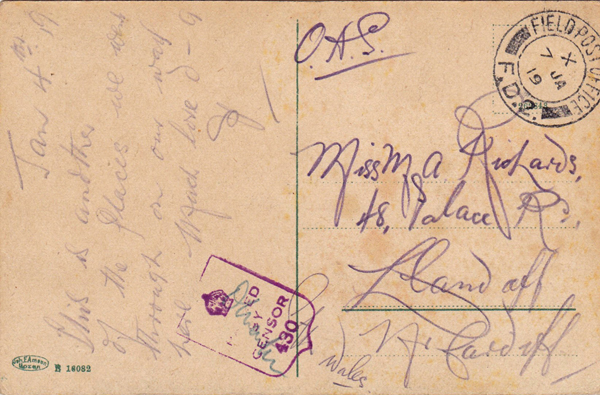 Jan 4th 19.
This is another
of the places we was
through on our way
here Much love
O.A.S.
FIELD POST OFFICE
X
7 JA
19
Miss M A Richards,
48, Palace Rd.,
Llandaff
Nr Cardiff
Wales.
ED
BY
CENSOR
430
B 16082